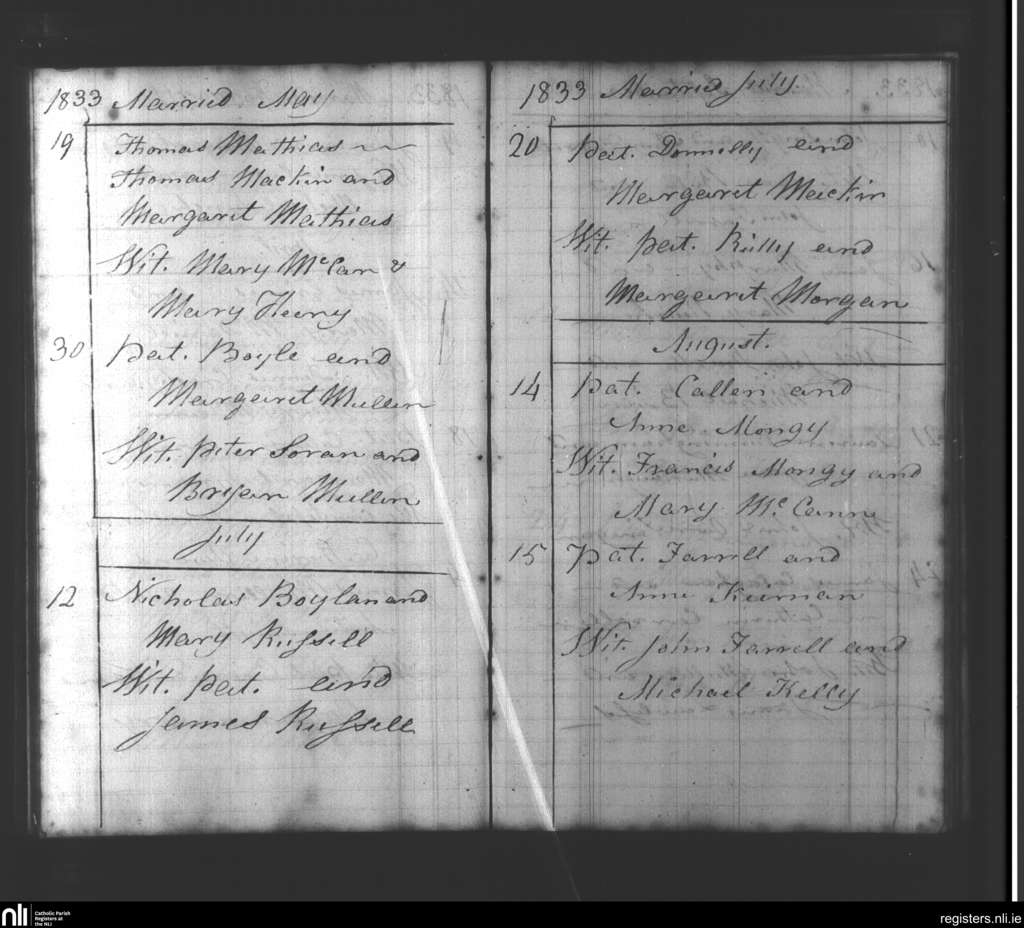 1833 Married May
19 Thomas Mathias
Thomas Mackin and
Margaret Mathias
Wit. Mary McCan &
Mary Heany
30 Pat. Boyle and
Margaret Mullen
Wit. Peter Soran and
Bryan Mullen
July
12 Nicholas Boylan and
Mary Russell
Wit. Pat. and
James Russell
1833 Married July.
20 Pat. Donnelly and
Margaret Mackin
Wit. Pat. Rielly and
Margaret Morgan
August.
14 Pat. Callen and
Anne Mongy
Wit. Francis Mongy and
Mary McCann
15 Pat. Farrell and
Anne Kiernan
Wit. John Farrell and
Michael Kelly
nli Catholic Parish
Registers at
the NLI
registers.nli.ie